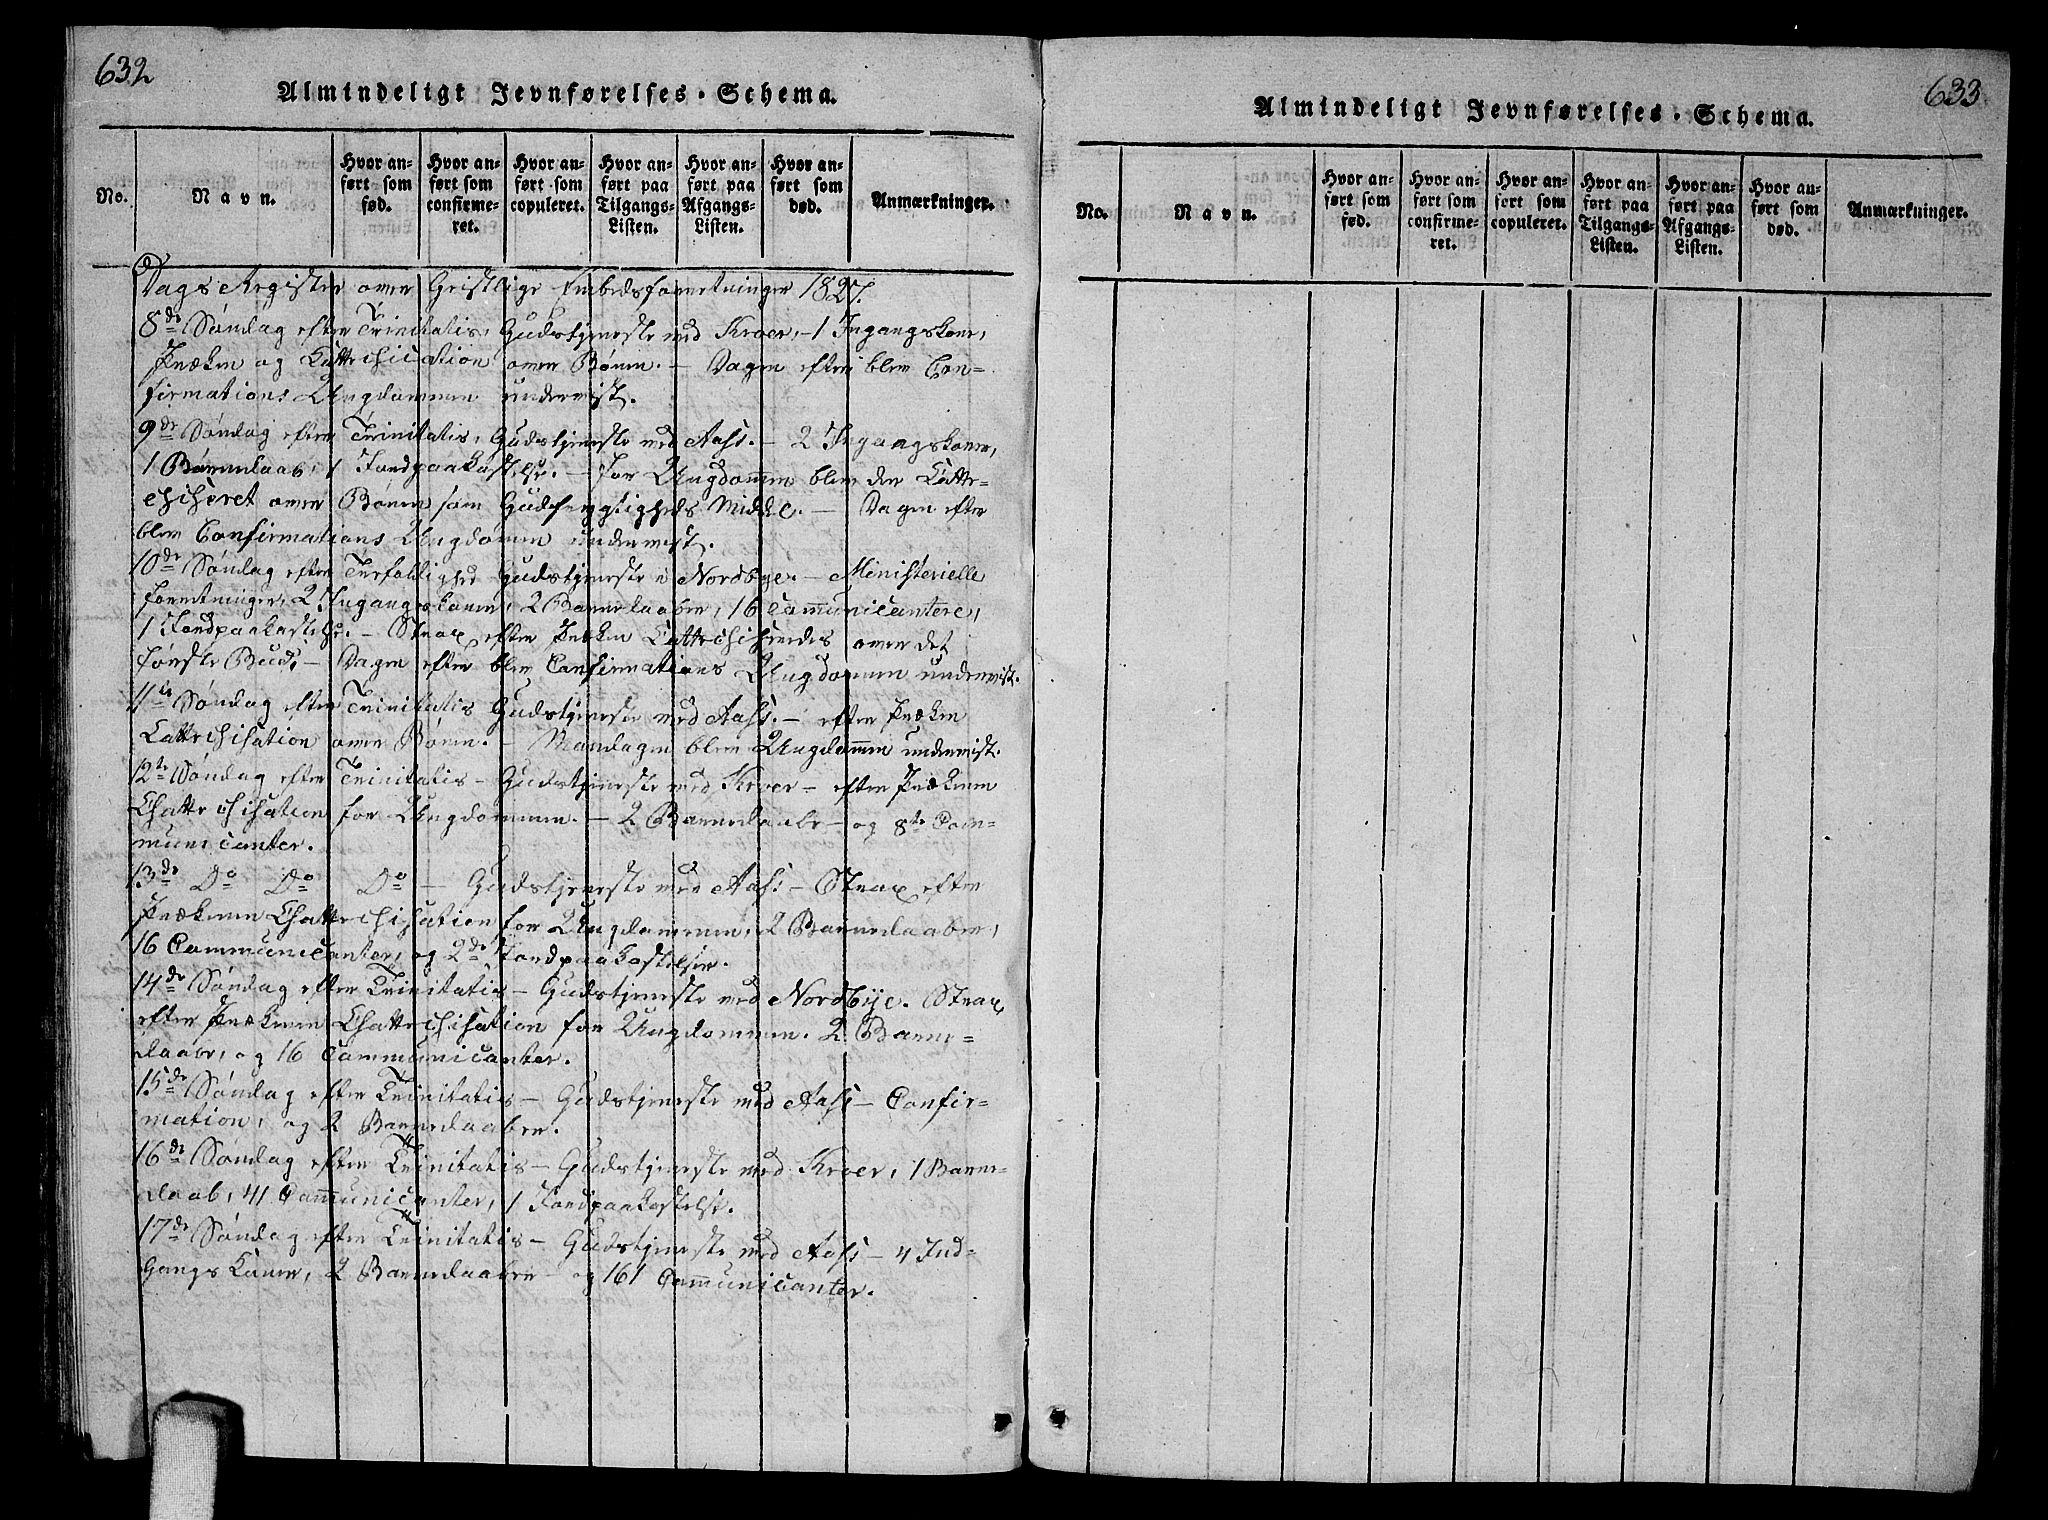 632
Almindeligt Jevnførelses-Schema.
No.
Navn.
Hvor anført som fød.
Hvor anført som confirmeret.
Hvor anført som copuleret.
Hvor anført paa Tilgangs-Listen.
Hvor anført paa Afgangs-Listen.
Hvor anført som død.
Anmærkninger.
Dags Register over Geistlige Embedsforretninger 1827.
8de Søndag efter Trinitatis, Gudstjeneste ved Kroer, 1 Ingangskone,
Præken og Cattechication over Bønen. - Dagen efter blev Con-
firmations Ungdommen underviist.
9de Søndag efter Trinitatis, Gudstjeneste ved Aahs. - 2 Ingangskoner,
1 Barnedaab, 1 Jordpaakastelse. - For Ungdommen blev der Catte-
chiseret over Bønen som Gudfrygtigheds Middel. - Dagen efter
blev Confirmations Ungdommen underviist.
10de Søndag efter Trefoldighed Gudstjeneste i Nordbye. - Ministerielle
Forretninger, 2 Ingangskoner, 2 Barnedaaber, 16 Communicantere,
1 Jordpaakastelse. - Strax efter Præken Cattechiseredes over det
første Bud. - Dagen efter blev Confirmations Ungdommen underviist.
11te Søndag efter Trinitatis Gudstjeneste ved Aahs. - efter Præken
Cattechisation over Bønen. - Mandagen blev Ungdommen underviist.
12te Søndag efter Trinitatis - Gudstjeneste ved Kroer - efter Prækenen
Chattechisation for Ungdommen. - 2 Barnedaabe - og 8te Com-
municanter.
13de Do Do Do - Gudstjeneste ved Aahs - Strax efter
Prækenen Chattechisation for Ungdommen, 2 Barnedaaber,
16 Communicanter, og 2de Jordpaakastelser.
14de Søndag efter Trinitatis - Gudstjeneste ved Nordbye. Strax
efter Prækenen Chattechisation for Ungdommen. 2 Barne-
daabe, og 16 Communicanter.
15de Søndag efter Trinitatis - Gudstjeneste ved Aahs - Confir-
mation, og 2 Barnedaaber.
16de Søndag efter Trinitatis - Gudstjeneste ved Kroer, 1 Barne-
daab, 41 Communicanter, 1 Jordpaakastelse.
17de Søndag efter Trinitatis - Gudstjeneste ved Aahs - 4 Ind-
gangs Koner, 2 Barnedaaber - og 161 Communicanter.
633
Almindeligt Jevnførelses-Schema.
No.
Navn.
Hvor anført som fød.
Hvor anført som confirmeret.
Hvor anført som copuleret.
Hvor anført paa Tilgangs-Listen.
Hvor anført paa Afgangs-Listen.
Hvor anført som død.
Anmærkninger.